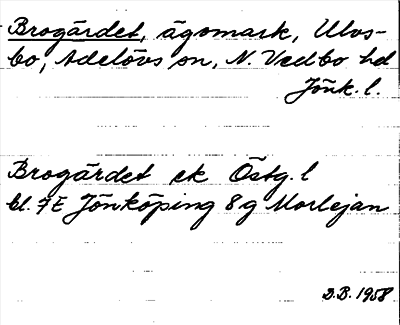 Brogärdet, ägomark, Ulvs-
bo, Adelövs sn, N. Vedbo hd
Jönk. l.
Brogärdet ek Östg. l
bl. 7E Jönköping 8g Morlejan
D.B. 1958